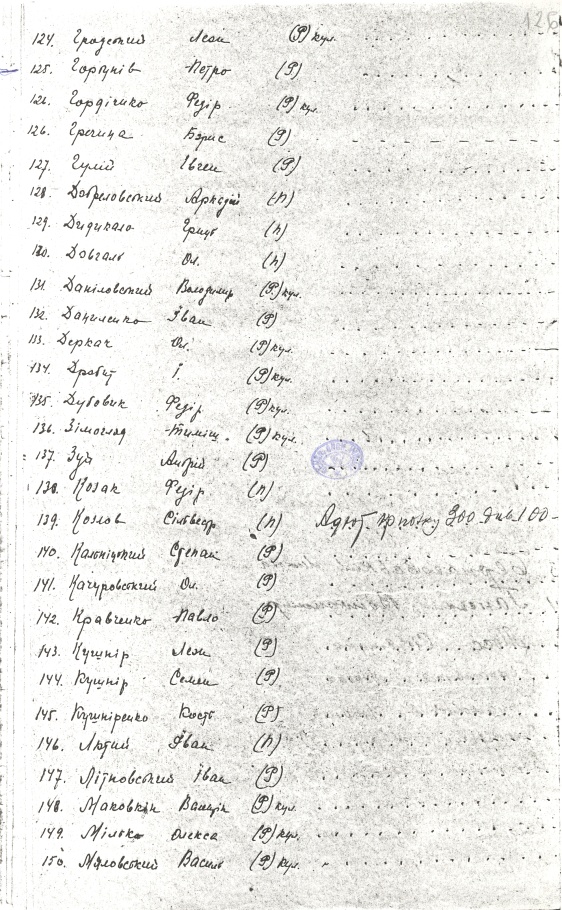 126
124. Гродский Леон (Р) кул.
125. Горбунів Петро (Р)
126. Гордієнко Федір (Р) кул.
126. Гречина Борис (Р)
127. Гулій Євген (Р)
128. Добреловський Аркадій (п)
129. Дидикало Гриць (п)
130. Довгаль Ол. (п)
131. Даніловський Володимир (Р) кул.
132. Даниленко Іван (Р)
133. Деркач Ол. (Р) кул.
134. Драбит І. (Р) кул.
135. Дубовик Федір (Р) кул.
136. Зімоглад Тиміш. (Р) кул.
137. Зуб Андрій (Р)
138. Козак Федір (п)
139. Козлов Сільвестр (п) 300 днів 100-
140. Калніцький Степан (Р)
141. Качуровський Ол. (Р)
142. Кравченко Павло (Р)
143. Кушнір Леон (Р)
144. Кушнір Семен (Р)
145. Кушніренко Кость (Р)
146. Лютий Іван (п)
147. Літновський Іван (Р)
148. Маковкін (Р) кул.
149. Мілько Олекса (Р) кул.
150. Маловський Василь (Р) кул.